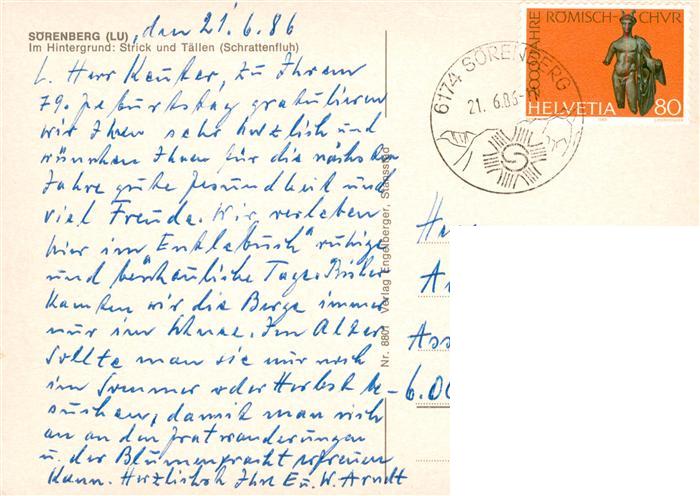 den 21.6.86
SÖRENBERG (LU)
Im Hintergrund: Strick und Tällen (Schrattenfluh)
L. Herr Keuter, zu Ihrem
79. Geburtstag gratulieren
wir Ihnen sehr herzlich und
wünschen Ihnen für die nächsten
Jahre gute Gesundheit und
viel Freude. Wir verleben
hier im Entlebuch ruhige
und beschauliche Tage. Bisher
kannten wir die Berge immer
nur im Schnee. Im Alter
sollte man sie nur noch
im Sommer oder Herbst be-
suchen, damit man sich
an den Gratwanderungen
u. der Blumenpracht erfreuen
kann. Herzlichst Ihre E u. W. Arndt
Nr. 8801 Verlag Engelberger, Stansstad
6174 SÖRENBERG
21. 6.86-
2000 JAHRE RÖMISCH-CHUR
HELVETIA 80
He
A
Ass
6.00